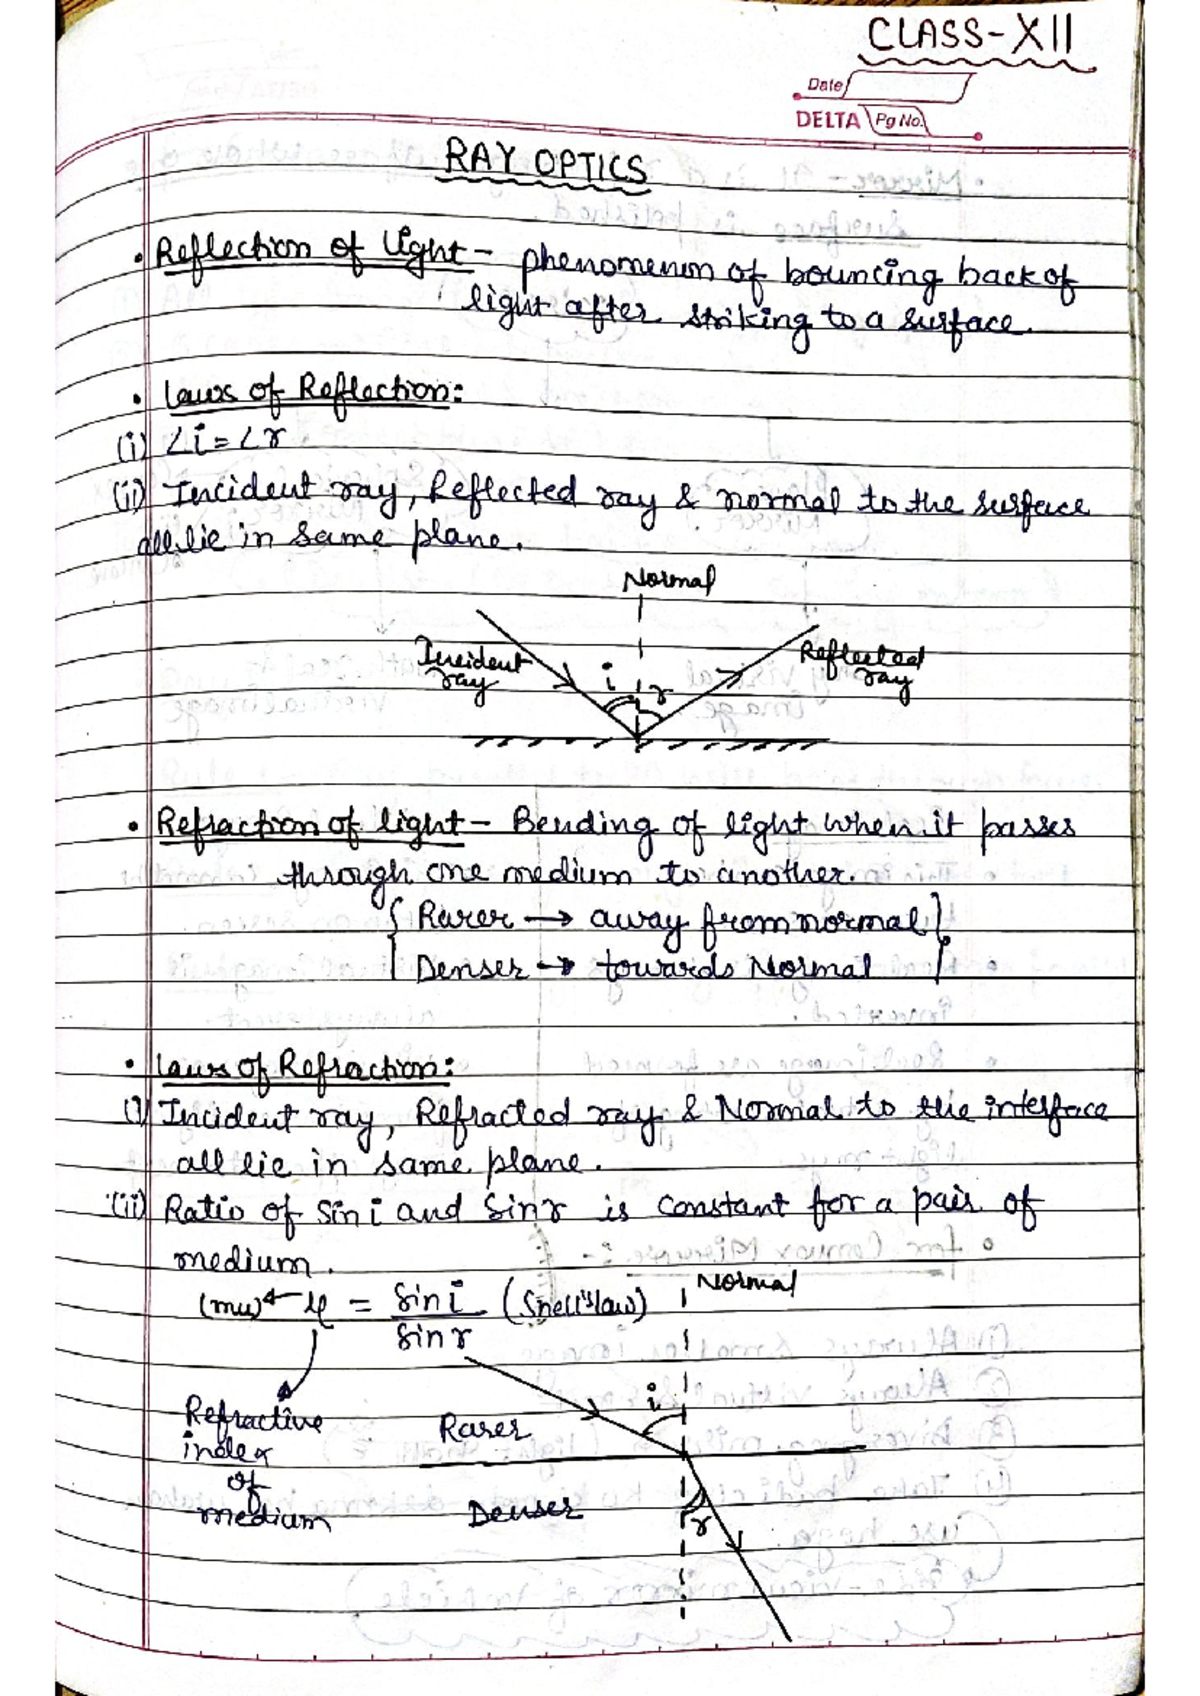 CLASS-XII
Date
DELTA Pg No.
RAY OPTICS
• Reflection of light - phenomenon of bouncing back of
light after striking to a surface.
• Laws of Reflection:
(i) ∠i = ∠r
(ii) Incident ray, Reflected ray & normal to the surface
all lie in same plane.
Normal
Incident ray
i
r
Reflected ray
• Refraction of light - Bending of light when it passes
through one medium to another.
{ Rarer → away from normal }
{ Denser → towards Normal }
• Laws of Refraction:
(i) Incident ray, Refracted ray & Normal to the interface
all lie in same plane.
(ii) Ratio of Sin i and Sin r is constant for a pair of
medium.
Normal
(mu) ← μ = Sin i / Sin r (Snell's law)
Refractive
index
of
medium
i
Rarer
Denser
r